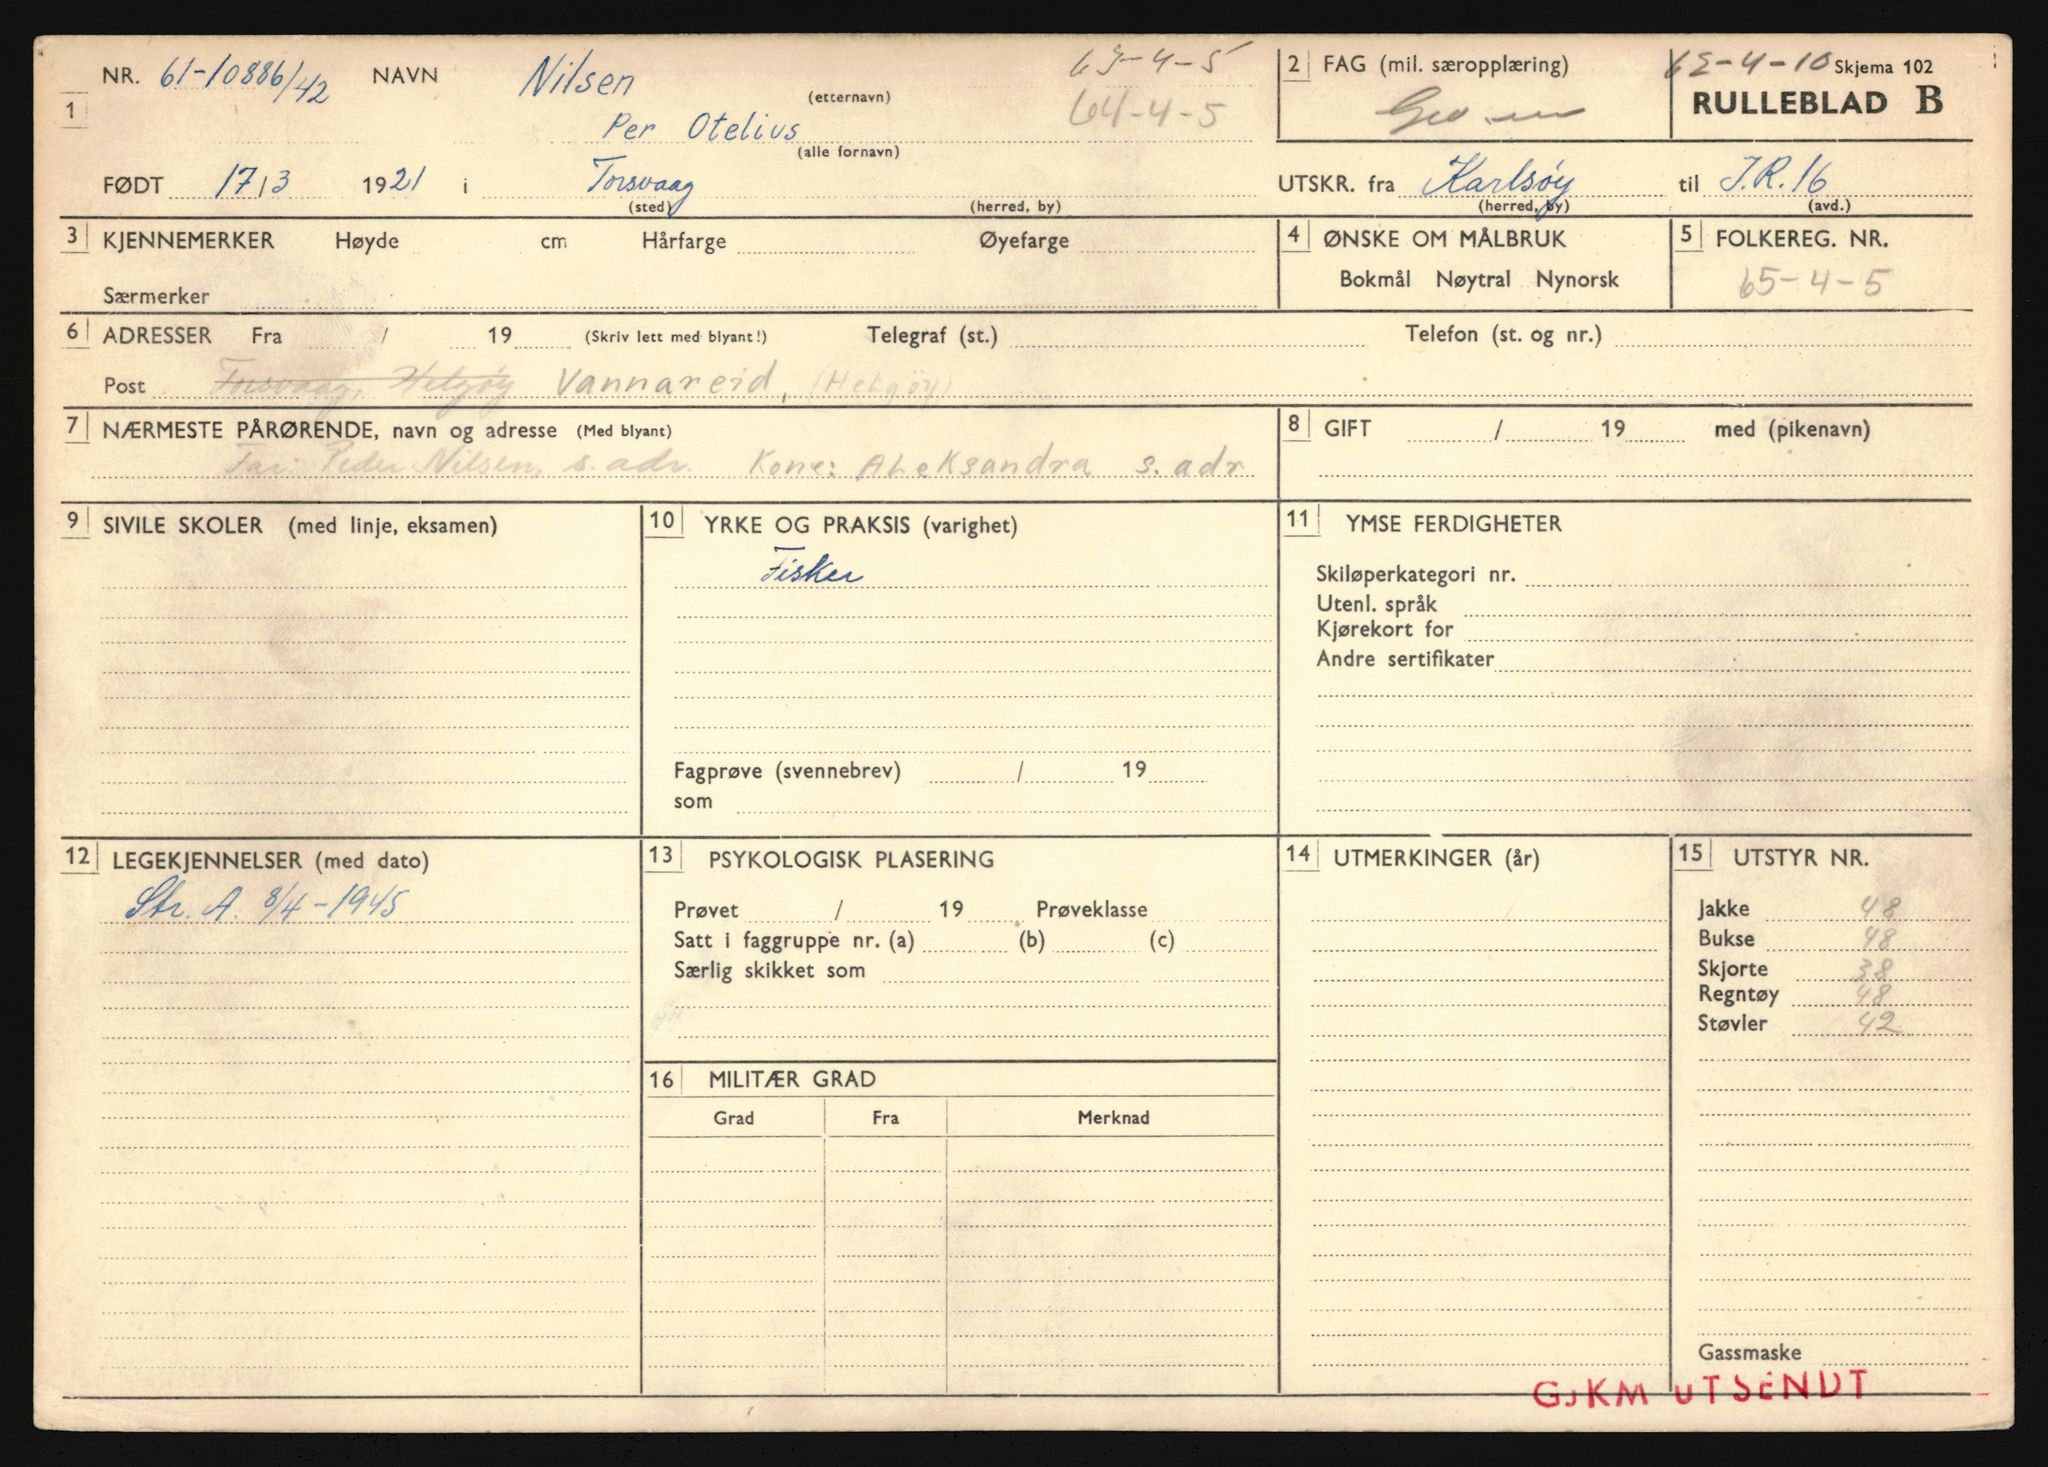 1 NR. 61-10886/42 NAVN Nilsen (etternavn) 63-4-5
Per Otelius (alle fornavn) 64-4-5
FØDT 17/3 1921 i Torsvaag (sted) (herred, by)
2 FAG (mil. særopplæring)
62-4-10 Skjema 102
RULLEBLAD B
UTSKR. fra Karlsøy (herred, by) til J.R.16 (avd.)
3 KJENNEMERKER Høyde cm Hårfarge Øyefarge
Særmerker
4 ØNSKE OM MÅLBRUK
Bokmål Nøytral Nynorsk
5 FOLKEREG. NR.
65-4-5
6 ADRESSER Fra / 19 (Skriv lett med blyant!) Telegraf (st.) Telefon (st. og nr.)
Post Torsvaag, Helgøy Vannareid, (Helgøy)
7 NÆRMESTE PÅRØRENDE, navn og adresse (Med blyant)
Far: Peder Nilsen, s. adr. Kone: Aleksandra s. adr
8 GIFT / 19 med (pikenavn)
9 SIVILE SKOLER (med linje, eksamen)
10 YRKE OG PRAKSIS (varighet)
Fisker
Fagprøve (svennebrev) / 19
som
11 YMSE FERDIGHETER
Skiløperkategori nr.
Utenl. språk
Kjørekort for
Andre sertifikater
12 LEGEKJENNELSER (med dato)
Str. A. 8/4-1945
13 PSYKOLOGISK PLASERING
Prøvet / 19 Prøveklasse
Satt i faggruppe nr. (a) (b) (c)
Særlig skikket som
14 UTMERKINGER (år)
15 UTSTYR NR.
Jakke 48
Bukse 48
Skjorte 38
Regntøy 48
Støvler 42
Gassmaske
16 MILITÆR GRAD
Grad Fra Merknad
GJKM UTSENDT